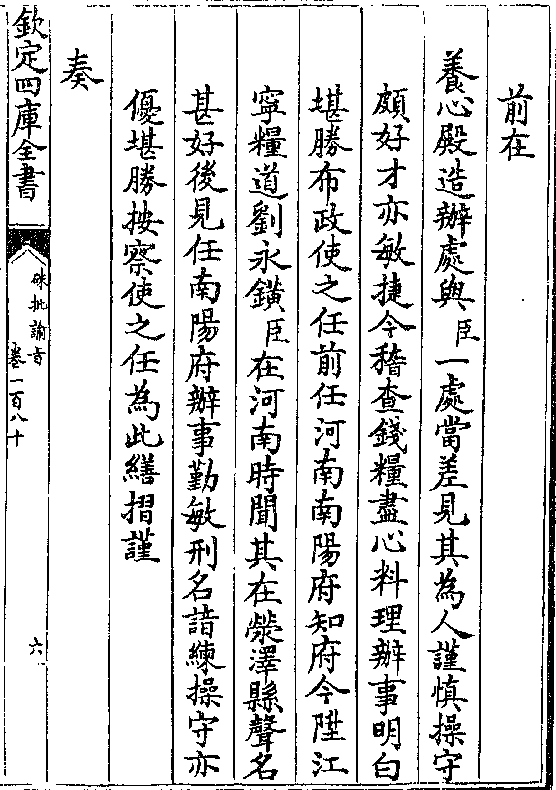 前在
養心殿造辦處與臣一處當差見其為人謹慎操守
頗好才亦敏捷今稽查錢糧盡心料理辦事明白
堪勝布政使之任前任河南南陽府知府今陞江
寧糧道劉永鑛臣在河南時聞其在滎澤縣聲名
甚好後見任南陽府辦事勤敏刑名諳練操守亦
優堪勝按察使之任為此繕摺謹
奏
欽定四庫全書
硃批諭旨
卷一百八十
六